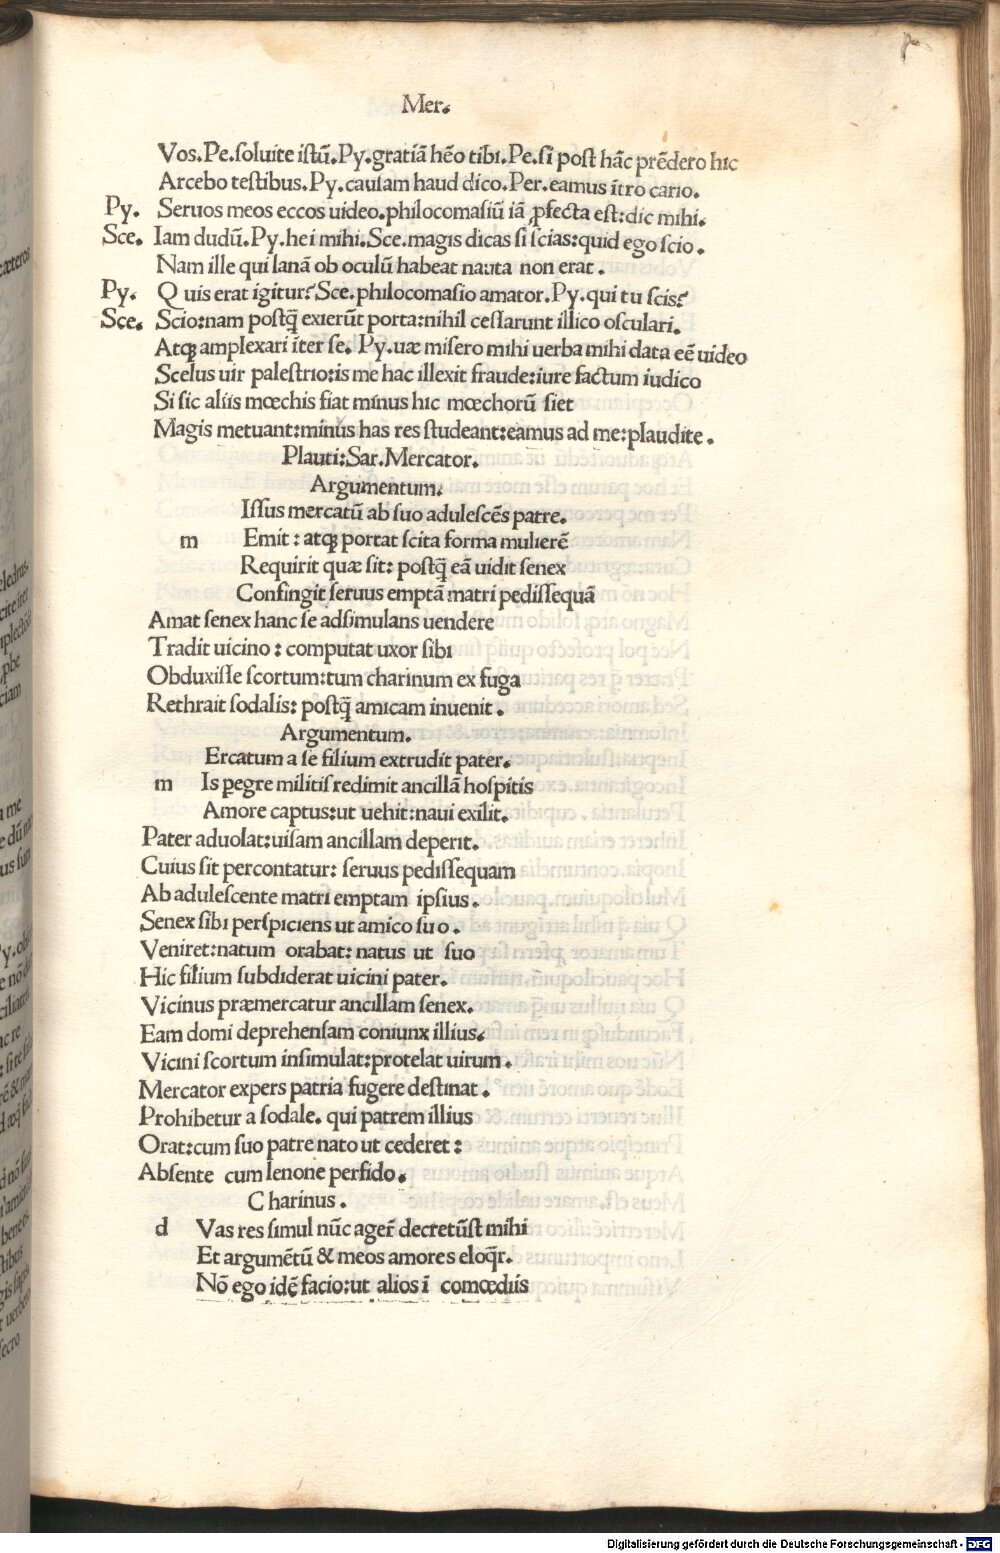 Mer.
Vos.Pe.ſoluite iſtū.Py.gratiā hēo tibi.Pe.ſi poſt hāc prēdero hic
Arcebo teſtibus.Py.cauſam haud dico.Per.eamus ītro cario.
Py. Seruos meos eccos uideo.philocomaſiū iā ꝓfecta eſt:dic mihi.
Sce. Iam dudū.Py.hei mihi.Sce.magis dicas ſi ſcias:quid ego ſcio.
Nam ille qui lanā ob oculū habeat nauta non erat.
Py. Quis erat igitur?Sce.philocomaſio amator.Py.qui tu ſcis?
Sce. Scio:nam poſtq̄ exierūt porta:nihil ceſſarunt illico oſculari.
Atqꝫ amplexari īter ſe. Py.uæ miſero mihi uerba mihi data eē uideo
Scelus uir paleſtrio:is me hac illexit fraude:iure factum iudico
Si ſic aliis mœchis fiat minus hic mœchorū ſiet
Magis metuant:minus has res ſtudeant:eamus ad me:plaudite.
Plauti:Sar.Mercator.
Argumentum.
Iſſus mercatū ab ſuo aduleſcēs patre.
m Emit: atqꝫ portat ſcita forma mulierē
Requirit quæ ſit: poſtq̄ eā uidit ſenex
Confingit ſeruus emptā matri pediſſequā
Amat ſenex hanc ſe adſimulans uendere
Tradit uicino: computat uxor ſibi
Obduxiſſe ſcortum:tum charinum ex fuga
Rethrait ſodalis: poſtq̄ amicam inuenit.
Argumentum.
Ercatum a ſe filium extrudit pater.
m Is ꝑegre militiſ redimit ancillā hoſpitis
Amore captus:ut uehit:naui exilit.
Pater aduolat:uiſam ancillam deperit.
Cuius ſit percontatur: ſeruus pediſſequam
Ab aduleſcente matri emptam ipſius.
Senex ſibi perſpiciens ut amico ſuo.
Veniret:natum orabat: natus ut ſuo
Hic filium ſubdiderat uicini pater.
Vicinus præmercatur ancillam ſenex.
Eam domi deprehenſam coniunx illius.
Vicini ſcortum inſimulat:protelat uirum.
Mercator expers patria fugere deſtinat.
Prohibetur a ſodale. qui patrem illius
Orat:cum ſuo patre nato ut cederet:
Abſente cum lenone perfido.
Charinus.
d Vas res ſimul nūc ager̄ decretūſt mihi
Et argumētū & meos amores eloq̄r.
Nō ego idē facio:ut alios ī comœdiis
Digitalisierung gefördert durch die Deutsche Forschungsgemeinschaft - DFG